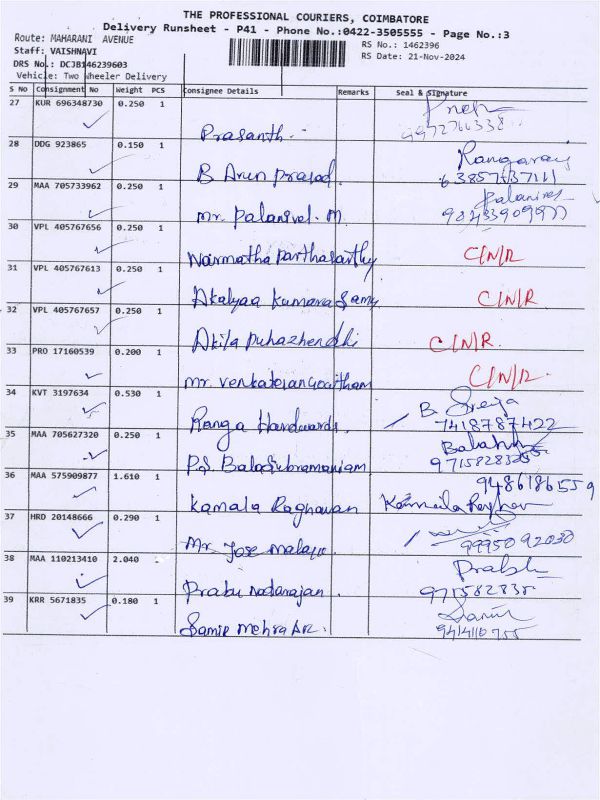 THE PROFESSIONAL COURIERS, COIMBATORE
Delivery Runsheet - P41 - Phone No.:0422-3505555 - Page No.:3
Route: MAHARANI AVENUE
RS No.: 1462396
Staff: VAISHNAVI
RS Date: 21-Nov-2024
DRS No.: DCJB146239603
Vehicle: Two Wheeler Delivery
S No Consignment No Weight PCS Consignee Details Remarks Seal & Signature
27 KUR 696348730 0.250 1
Prasanth. 9972766338
28 DDG 923865 0.150 1 Rangaraj
B Arun prasad.
29 MAA 705733962 0.250 1
mr. palanivel. M.
30 VPL 405767656 0.250 1
Narmatha parthasarthy C/N/R
31 VPL 405767613 0.250 1
Akalyaa kumara samy C/N/R
32 VPL 405767657 0.250 1
Akila puhazhendhi C/N/R.
33 PRO 17160539 0.200 1
mr. venkatesan goutham C/N/R.
34 KVT 3197634 0.530 1 B. Sreija
Ranga Hardwards. 7418787422
35 MAA 705627320 0.250 1
P.S. Balasubramaniam
36 MAA 575909877 1.610 1 9486186559
Kamala Raghavan
37 HRD 20148666 0.290 1
Mr. Jose malayil. 9995092030
38 MAA 110213410 2.040
Prabu Nadarajan. 971582835
39 KRR 5671835 0.180 1
Samir Mehra AR. 9414110755